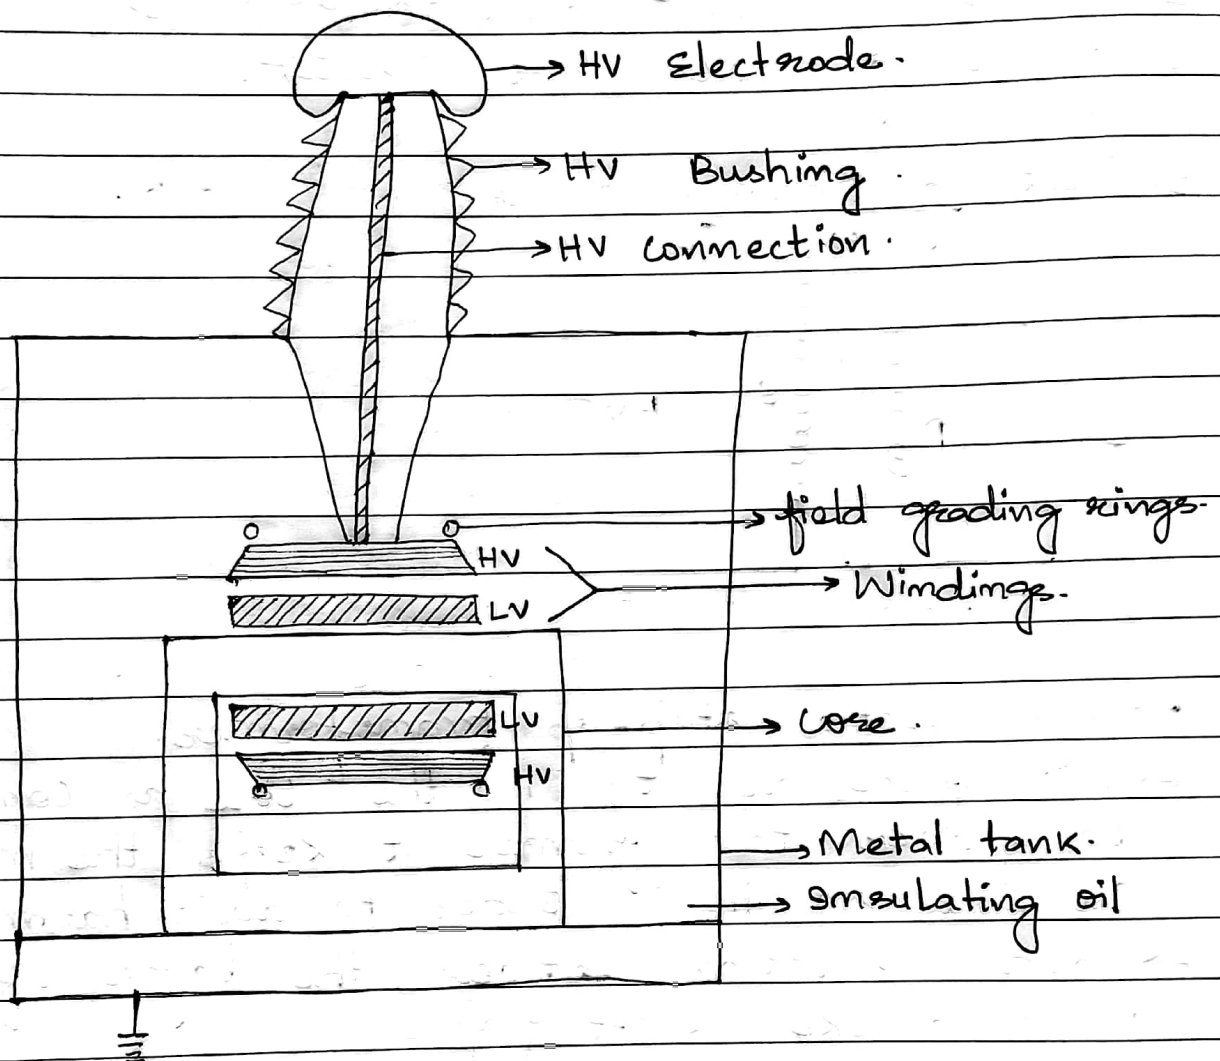 HV Electrode.
HV Bushing.
HV connection.
field grading rings.
HV
Windings.
LV
LV
Core.
HV
Metal tank.
Insulating oil